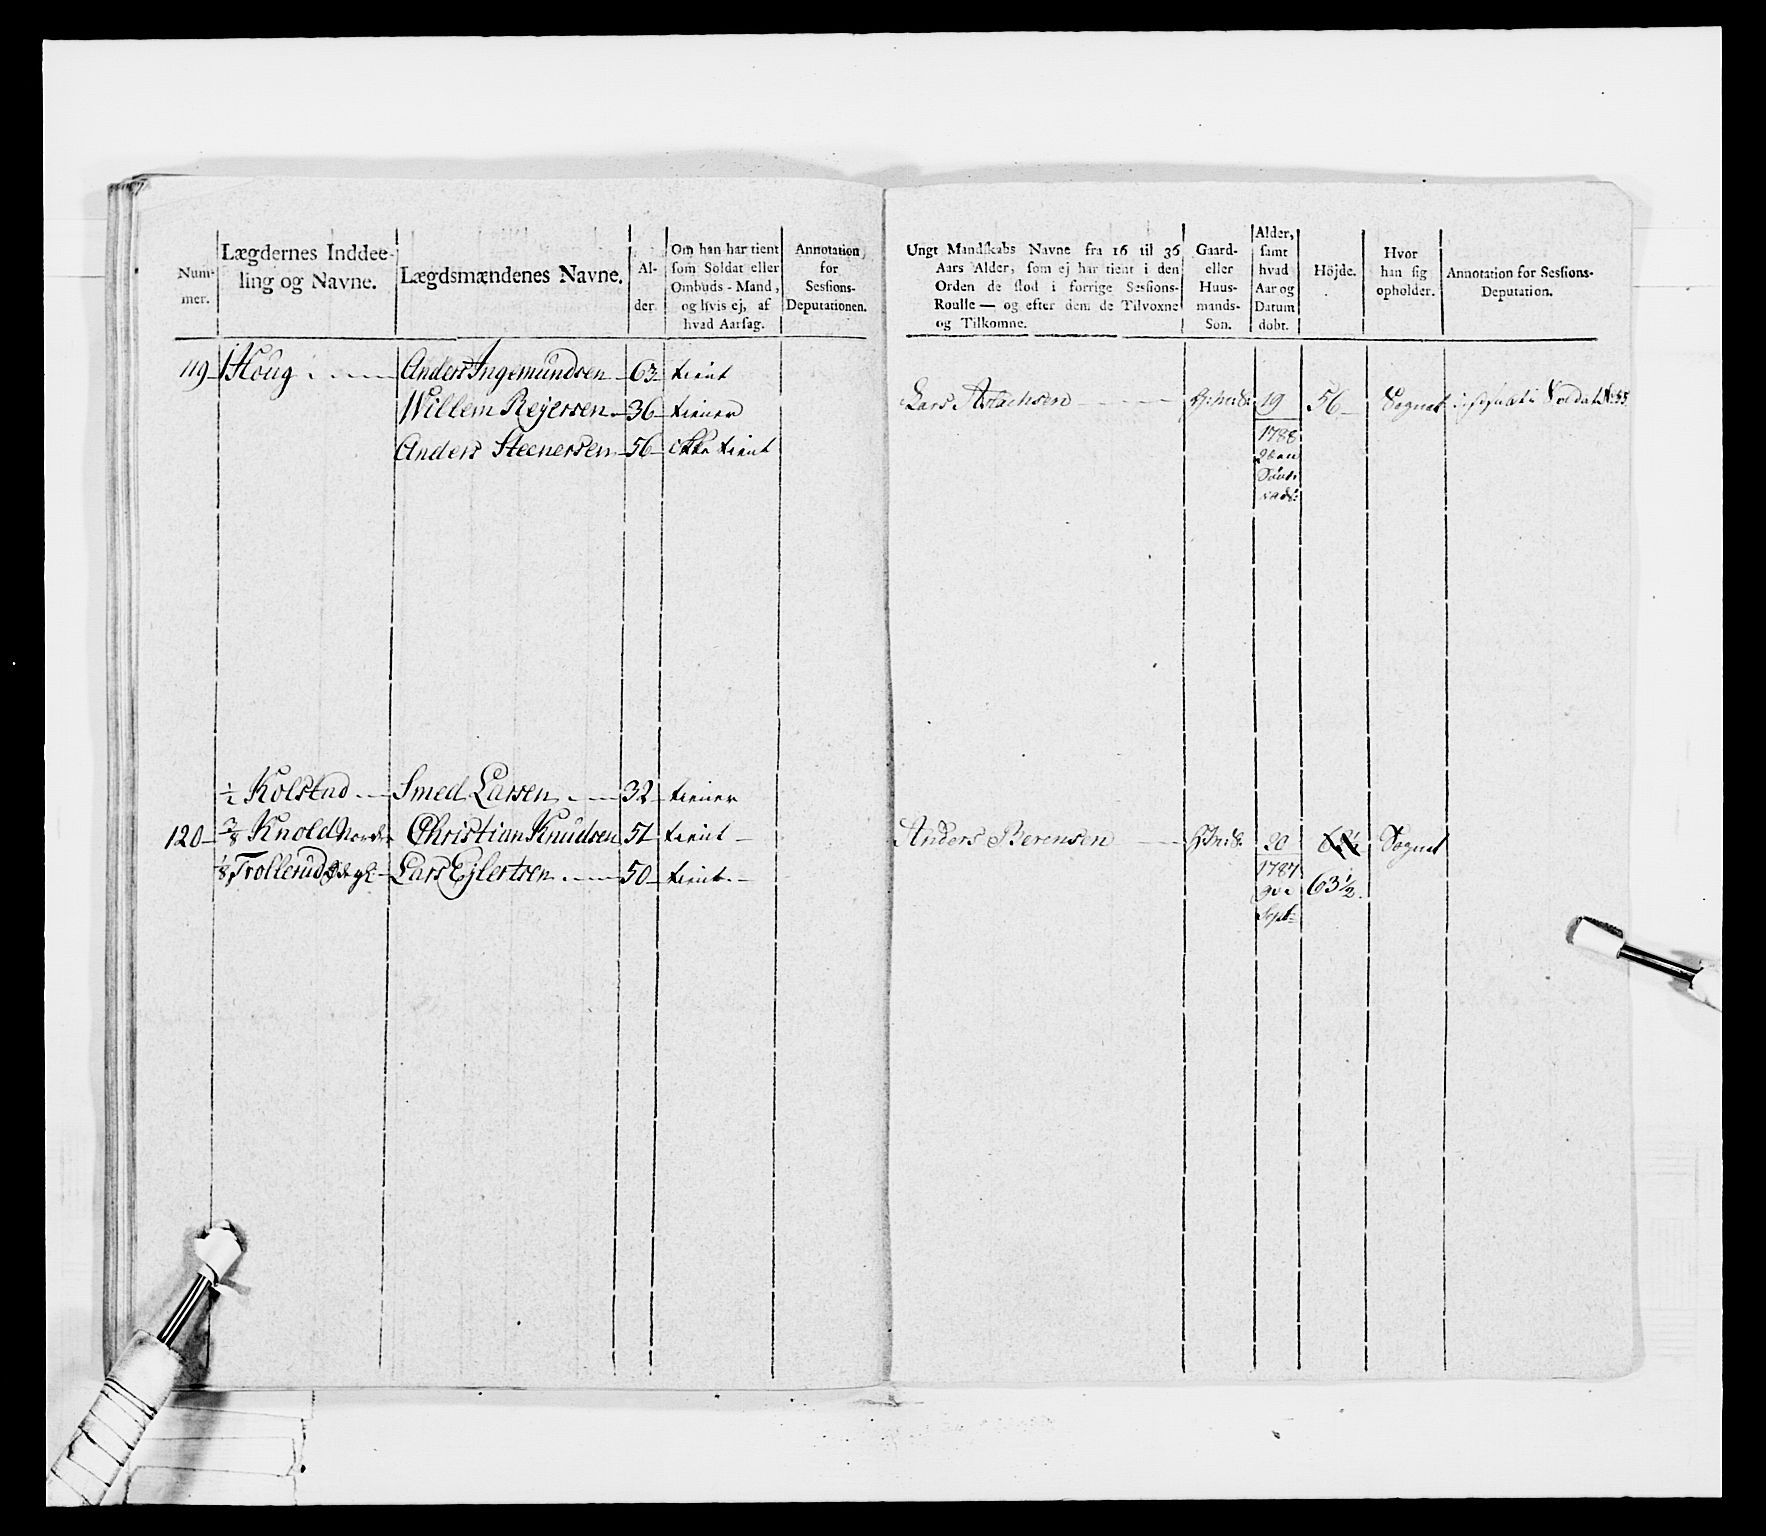 Num-
mer.
Lægdernes Inddee-
ling og Navne.
Lægdsmændenes Navne.
Al-
der.
Om han har tient
som Soldat eller
Ombuds-Mand,
og hvis ej, af
hvad Aarsag.
Annotation
for
Sessions-
Deputationen.
119 1 Houg Anders Ingemundsen 63 tient
Willem Rejersen 36 tiener
Anders Steenersen 56 ikke tient
1/2 Kolstad Smed Larsen 32 tiener
120 3/8 Knold Nordre Christian Knudsen 51 tient
1/8 Trollerud Lars Ejlertsen 50 tient
Ungt Mandskabs Navne fra 16 til 36
Aars Alder, som ej har tient i den
Orden de stod i forrige Sessions-
Roulle — og efter dem de Tilvoxne
og Tilkomne.
Gaard-
eller
Huus-
mands-
Son.
Alder,
samt
hvad
Aar og
Datum
dobt.
Höjde.
Hvor
han sig
opholder.
Annotation for Sessions-
Deputation.
Lars 19 56 Sognet Soldat
1788
Anders Berensen 20 Sognet
1787 63 1/2
Sept